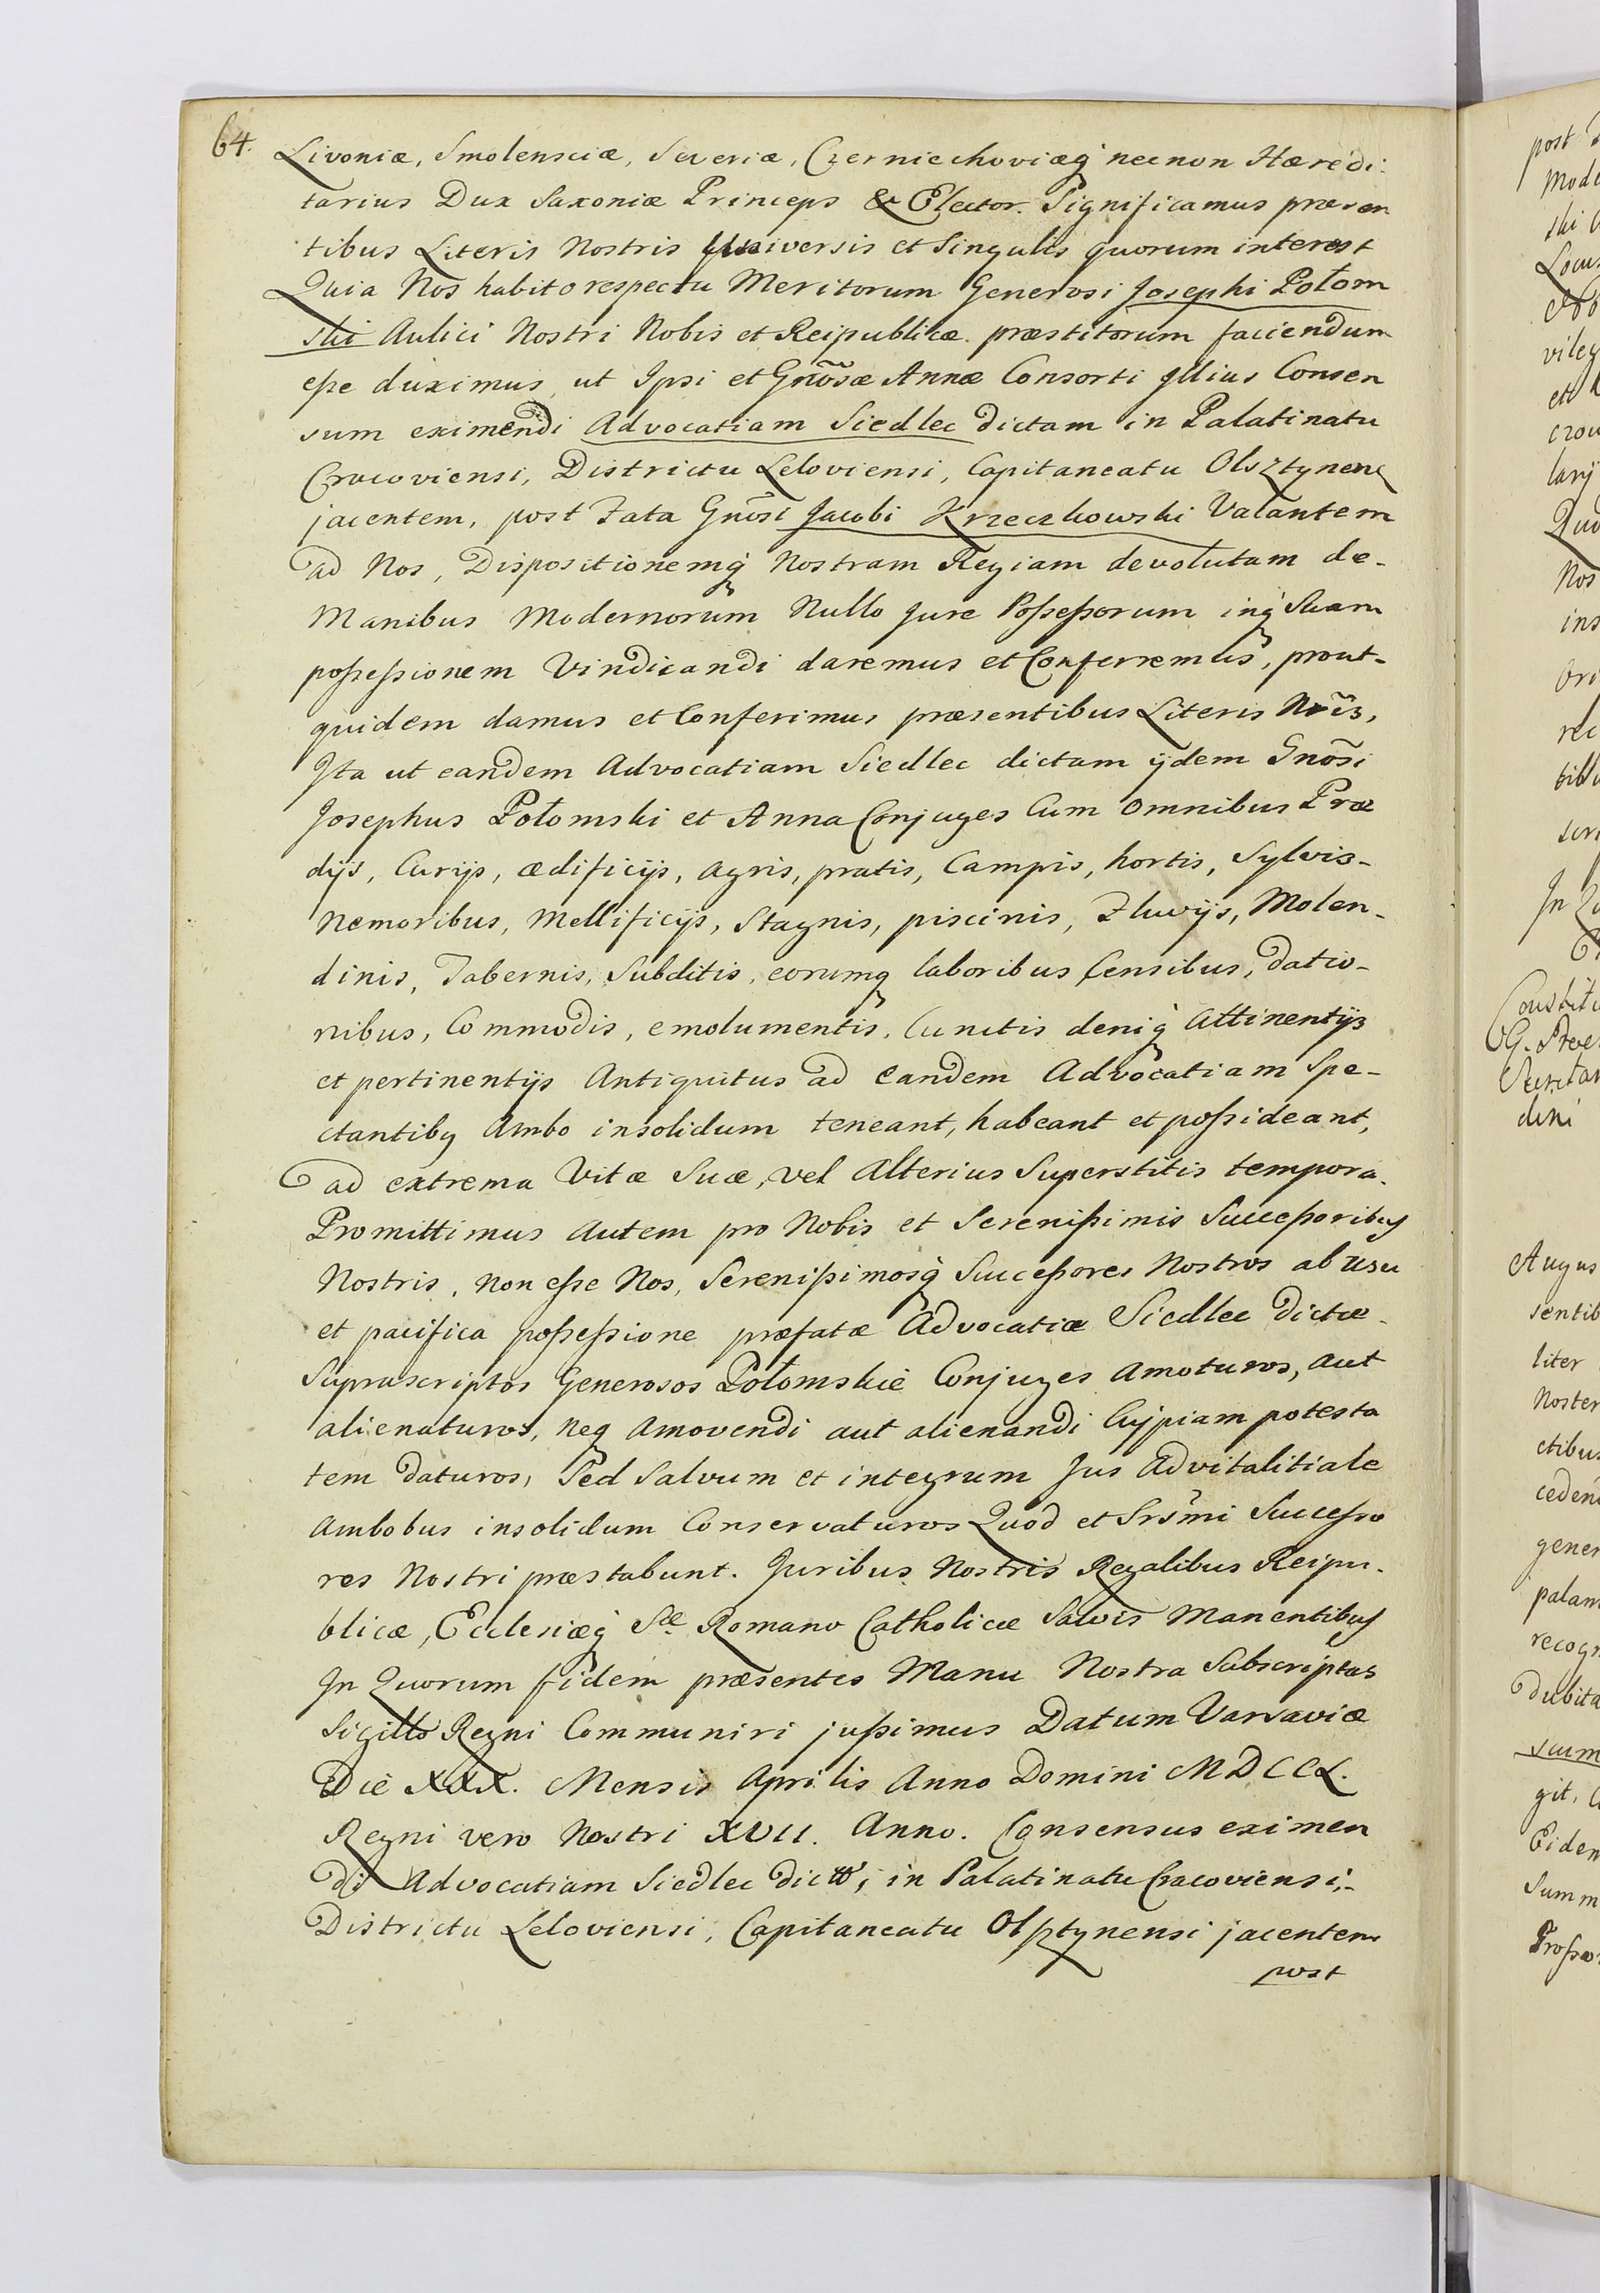 64.
Livoniæ, Smolensciæ, Severiæ, Czerniechoviæq̃ necnon Hæredi:
tarius Dux Saxoniæ Princeps & Elector. Significamus præsen
tibus Literis Nostris Universis et Singulis quorum interest
Quia Nos habito respectu Meritorum Generosi Josephi Połom
ski Aulici Nostri Nobis et Reipublicæ præstitorum faciendum
eſse duximus, ut Ipsi et Gnõsæ Annæ Consorti Illius Consen
sum eximendi Advocatiam Siedlec dictam in Palatinatu
Cracoviensi, Districtu Leloviensi, Capitaneatu Olsztynen
jacentem, post Fata Gnõsi Jacobi Krzeczkowski Vacantem
ad Nos, Dispositionemq̃ Nostram Regiam devolutam de-
Manibus Modernorum Nullo Jure Poſseſsorum inq̃ Suam
poſseſsionem Vindicandi daremus et Conferremus, prout-
quidem damus et Conferimus præsentibus Literis Nr̃is,
Ita ut eandem Advocatiam Siedlec dictam ijdem Gnõsi
Josephus Połomski et Anna Conjuges Cum omnibus Præ
dijs, Curijs, ædificijs, agris, pratis, Campis, hortis, Sylvis-
Nemoribus, Mellificijs, Stagnis, piscinis, Fluvijs, Molen-
dinis, Tabernis, Subditis, eorumq laboribus Censibus, datio-
nibus, Commodis, emolumentis, Cunctis deniq̃ Attinentijs
et pertinentijs Antiquitus ad Eandem Advocatiam Spe-
ctantibq Ambo insolidum teneant, habeant et poſsideant,
ad extrema Vitæ Suæ, vel Alterius Superstitis tempora.
Promittimus autem pro Nobis et Sereniſsimis Succeſsoribq
Nostris, non eſse Nos, Sereniſsimosq̃ Succeſsores Nostros ab usu
et pacifica poſseſsione præfatæ Advocatiæ Siedlec Dictæ-
Suprascriptos Generosos Połomskie Conjuges Amoturos, aut
alienaturos, neq Amovendi aut alienandi Cujpiam potesta
tem daturos, Sed Salvum et integrum Jus Advitalitiale
Ambobus insolidum Conservaturos Quod et Srs̃mi Succeſso
res Nostri præstabunt. Juribus Nostris Regalibus Reipu-
blicæ, Ecclesiæq̃ Sæ Romano Catholicæ Salvis Manentibq
In Quorum fidem præsentes Manu Nostra Subscriptas
Sigillo Regni Communiri juſsimus Datum Varsaviæ
Die XXX. Mensis Aprilis Anno Domini MDCCL.
Regni vero Nostri XVII. Anno. Consensus eximen
di Advocatiam Siedlec in Palatinatu Cracoviensi,-
Districtu Leloviensi, Capitaneatu Olſztynensi jacentem
post